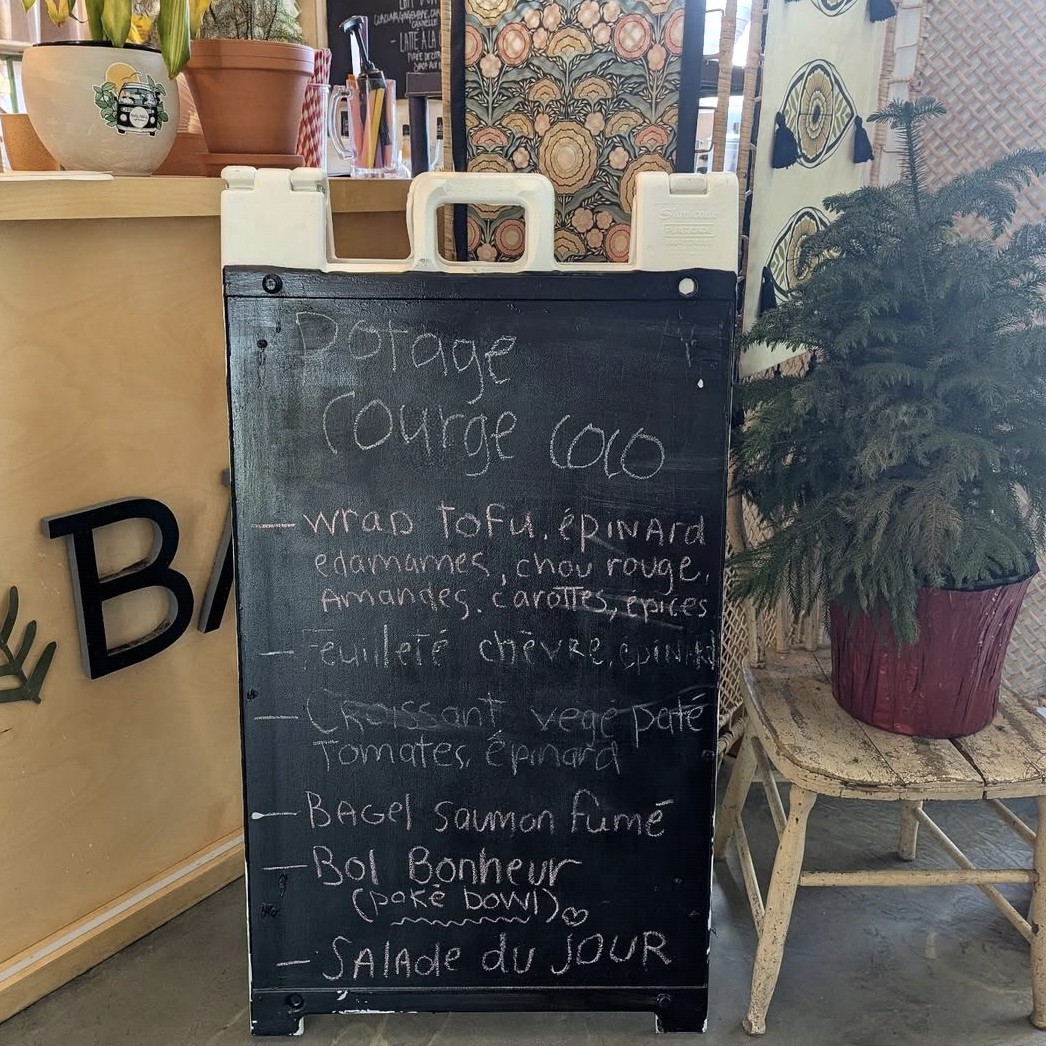 LATTE À LA
Potage
Courge coco
— wrap tofu, épinard
edamames, chou rouge,
Amandes, carottes, épices
— Feuilleté chèvre, épinard
— Croissant végé paté
Tomates, épinard
— Bagel saumon fumé
— Bol Bonheur
(poké bowl)
— Salade du jour
BA